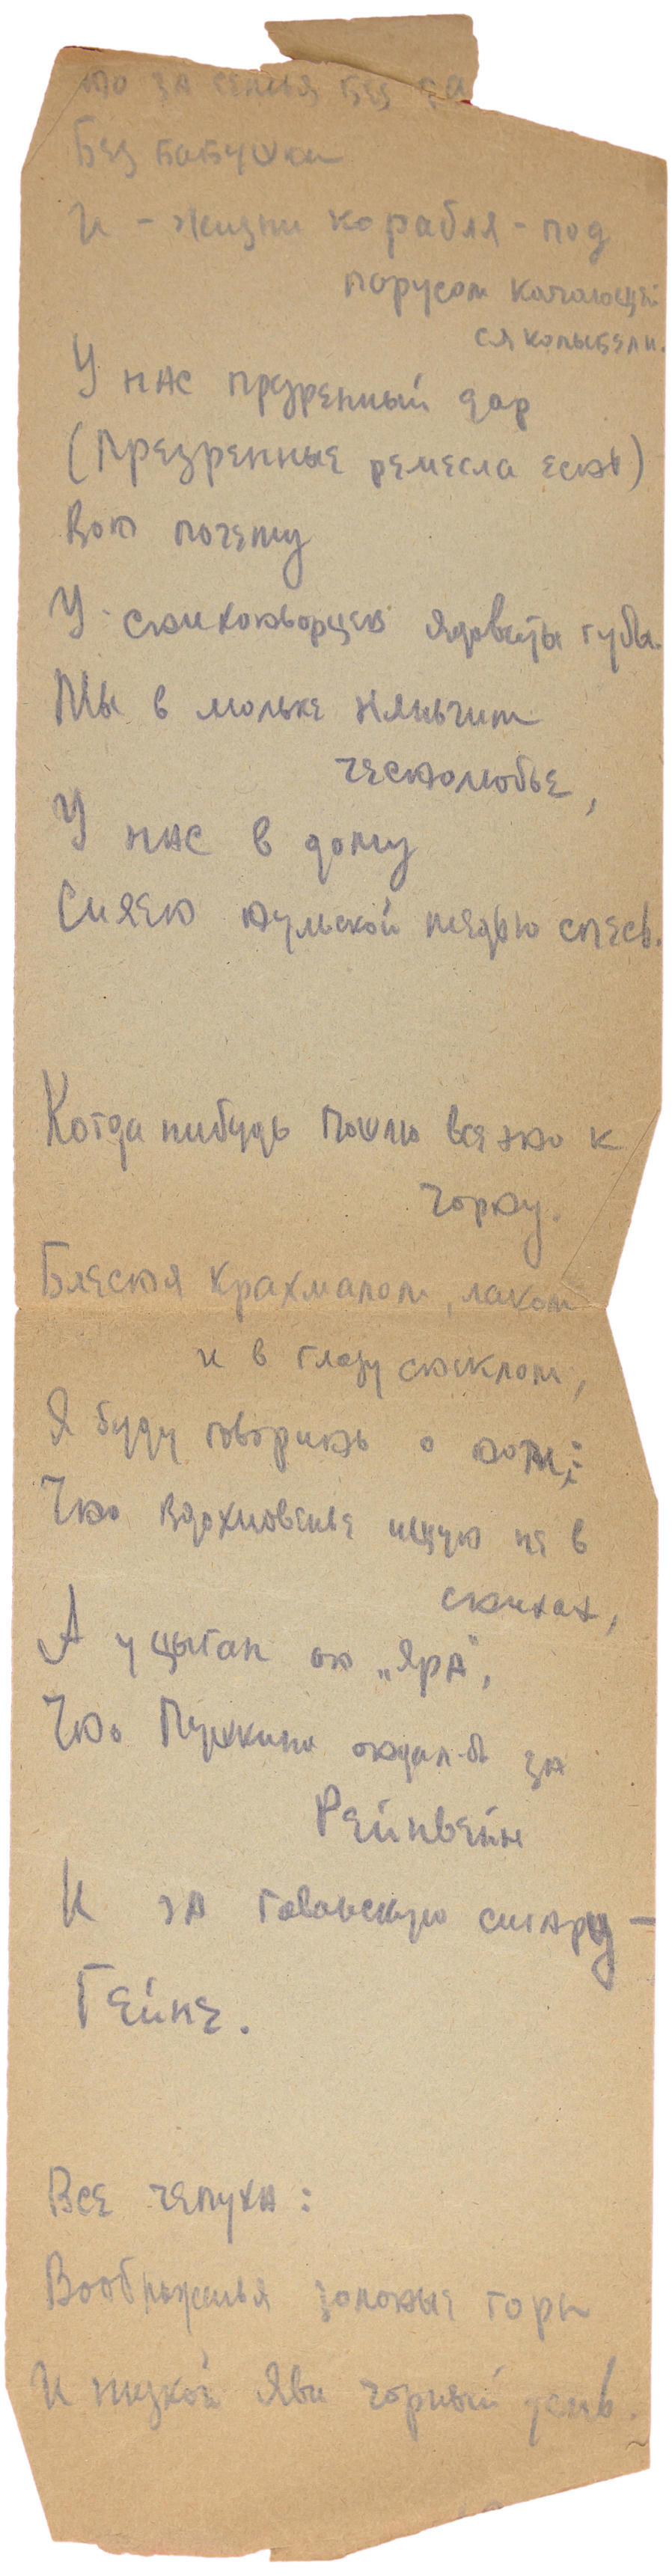 то за семья без ба
Без бабушки
И – жизни корабля – под
парусом качающей
ся колыбели.
У нас презренный дар
(Презренные ремесла есть)
Вот почему
У стихотворцев ядовиты губы.
Мы в люльке няньчим
честолюбье,
У нас в дому
Сияет тульской медью спесь.
Когда нибудь пошлю все это к
чорту.
Блестя крахмалом, лаком
и в глазу стеклом,
Я буду говорить о том:
Что вдохновенье ищут не в
стихах,
А у цыган от „Яра",
Что Пушкина отдал-б за
Рейнвейн
И за гаванскую сигару –
Гейне.
Все чепуха:
Воображенья золотые горы
И низкой яви чорный день.